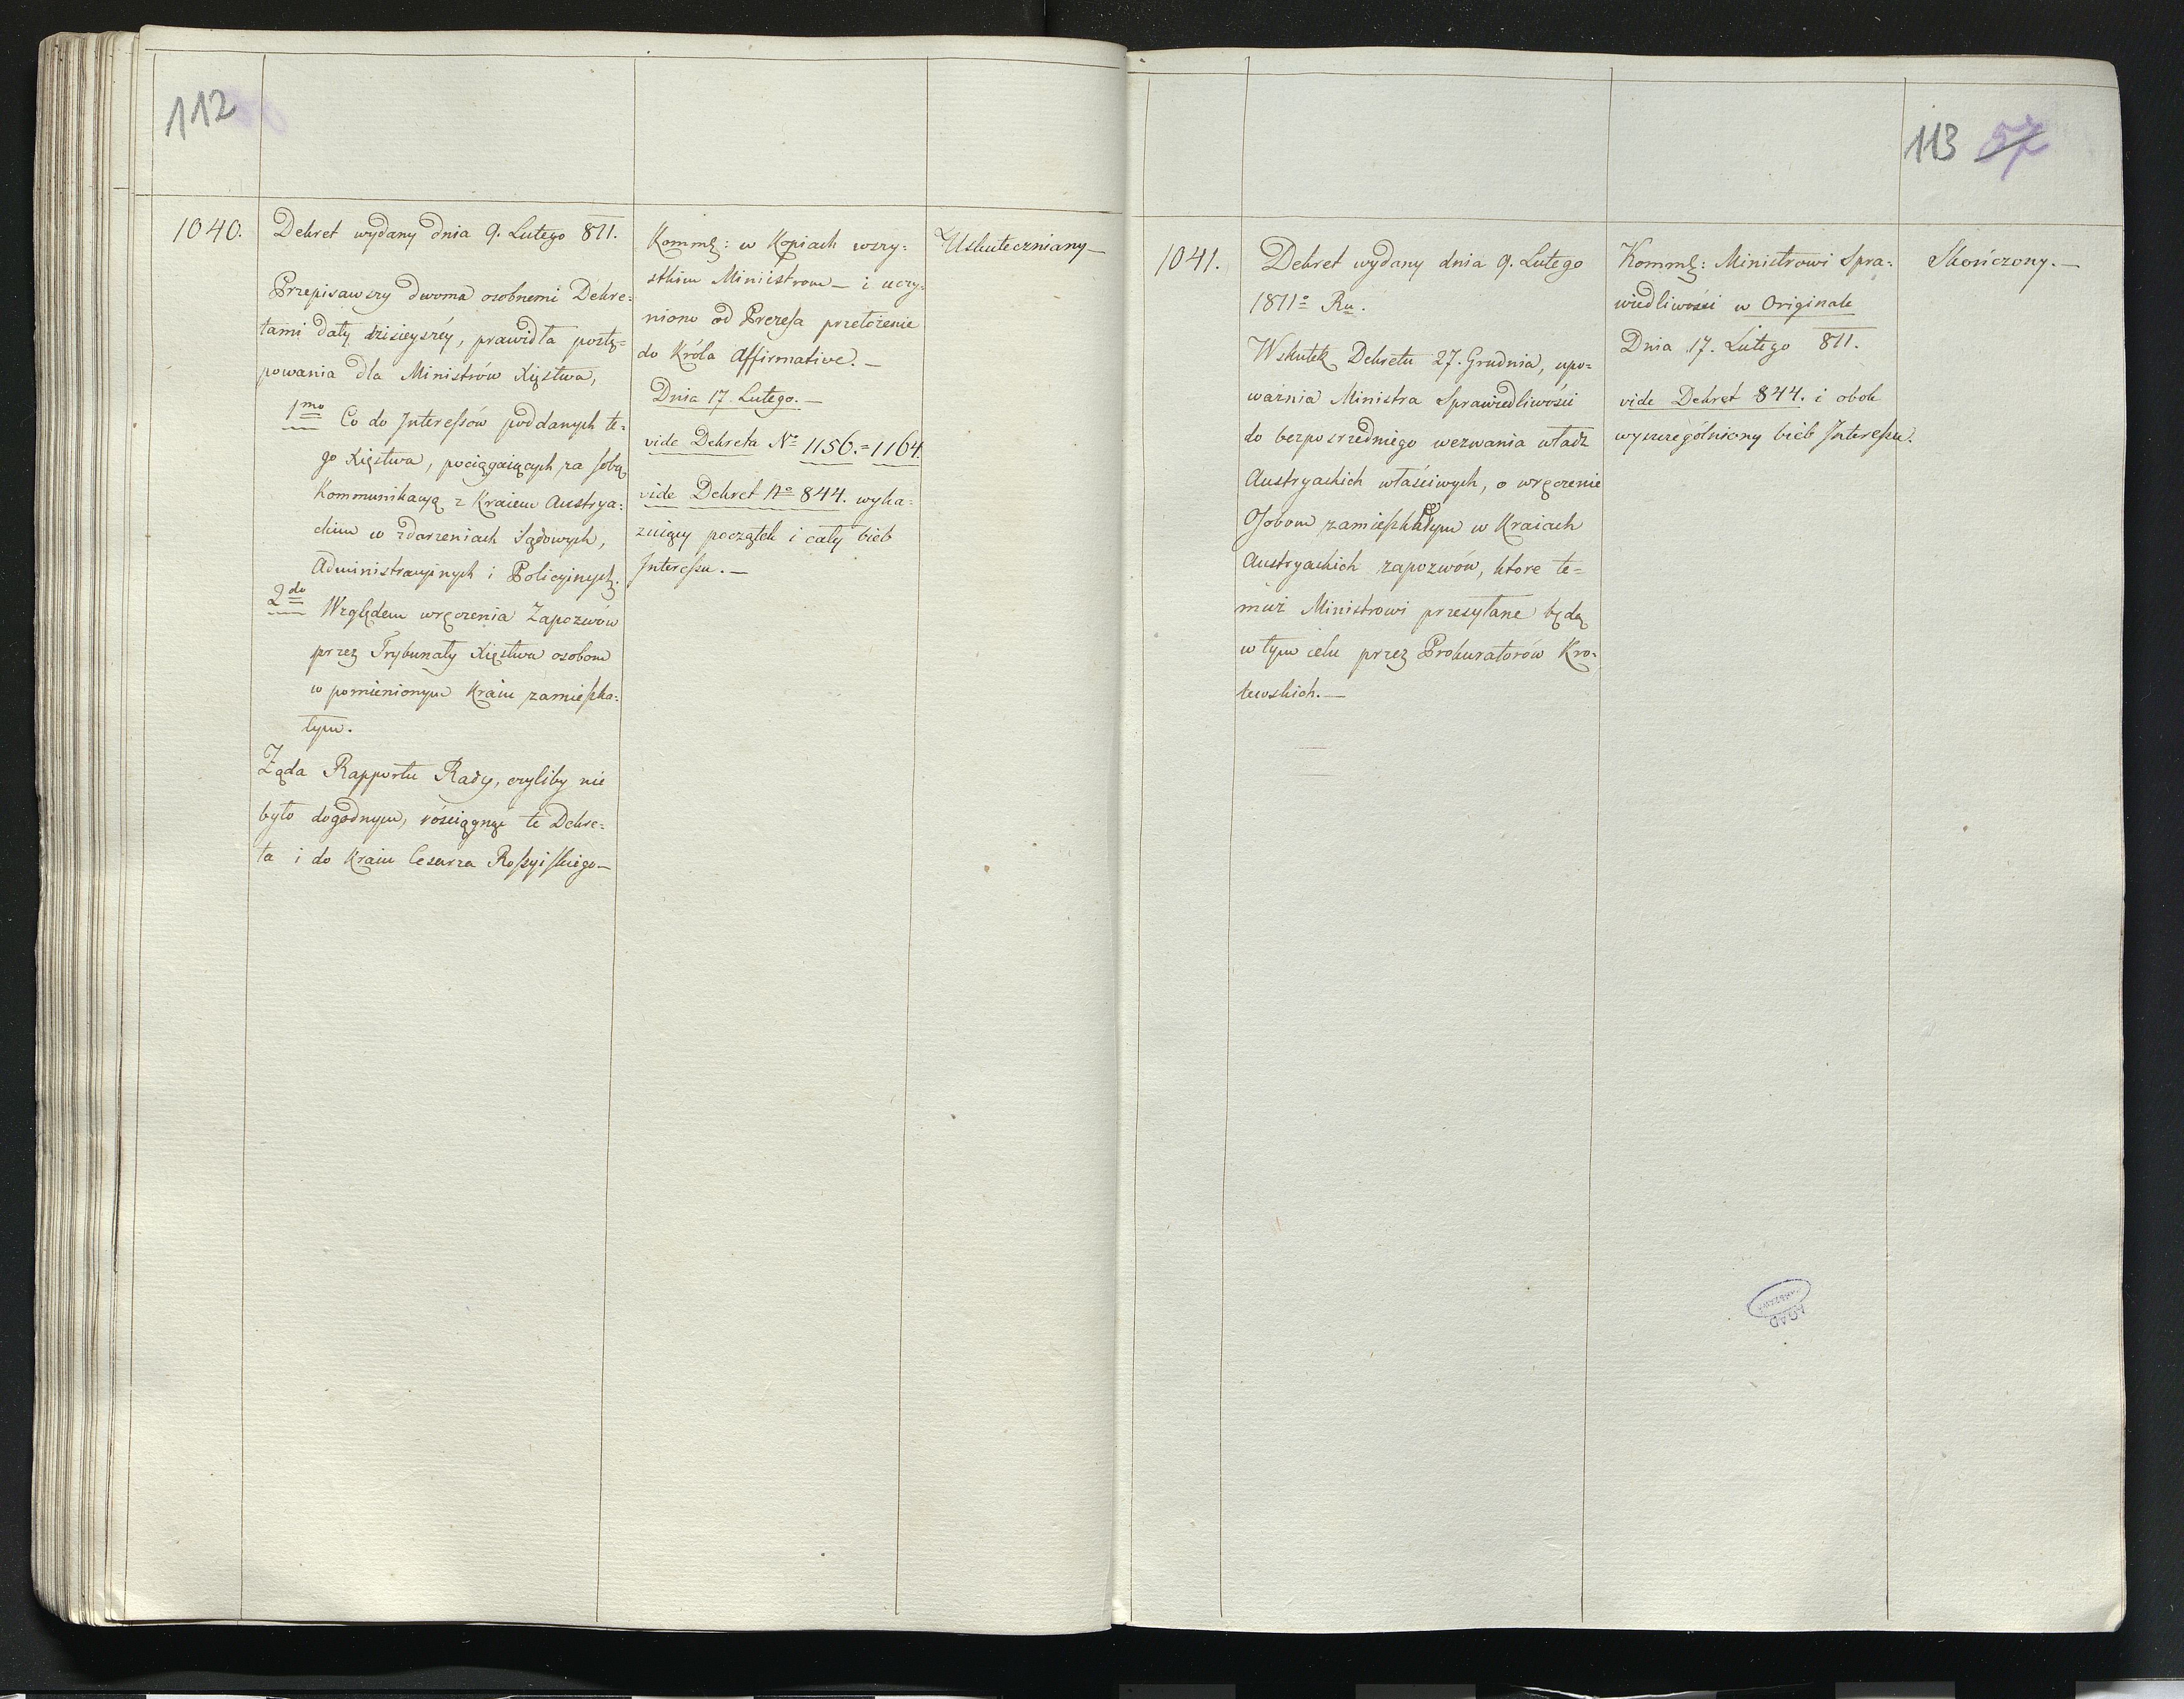 112
1040.
Dekret wydany dnia 9. Lutego 811.
Przepisawszy dwoma osobnemi Dekre=
tami daty dzisieyszéy, prawidła postę=
powania dla Ministrów Xięstwa,
1mo Co do Interessów poddanych te=
go Xięstwa, pociągaiących za sobą
Kommunikacyą z Kraiem Austrya=
ckim w zdarzeniach Sądowych,
Administracyinych i Policyinych.
2do Względem wręczenia Zapozwów
przez Trybunały Xięstwa osobom
w pomienionym Kraiu zamieszka=
łym.
Żąda Rapportu Rady, czyliby nie
było dogodnym, rościągnąć te Dekre=
ta i do Kraiu Cesarza Rossyiskiego—
Kommę: w Kopiach wszy=
stkim Ministrom — i uczy=
niono od Prezesa przełożenie
do Króla Affirmative. —
Dnia 17. Lutego. —
vide Dekreta No 1156. = 1164.
vide Dekret No 844. wyka=
zuiący początek i cały bieb
Interessu. —
Uskuteczniany —
113 57
1041.
Dekret wydany dnia 9. Lutego
1811o Ru.
Wskutek Dekretu 27. Grudnia, upo=
ważnia Ministra Sprawiedliwości
do bezpośrzedniego wezwania władz
Austryackich właściwych, o wręczenie
Osobom zamieszkałym w Kraiach
Austryackich zapozwów, ktore te=
muż Ministrowi przesyłane będą
w tym celu przez Prokuratorów Kró=
lewskich. —
Kommę: Ministrowi Spra=
wiedliwości w Originale
Dnia 17. Lutego 811.
vide Dekret 844. i obok
wyszczególniony bieb Interessu.
Skończony. —
AGAD
WARSZAWA